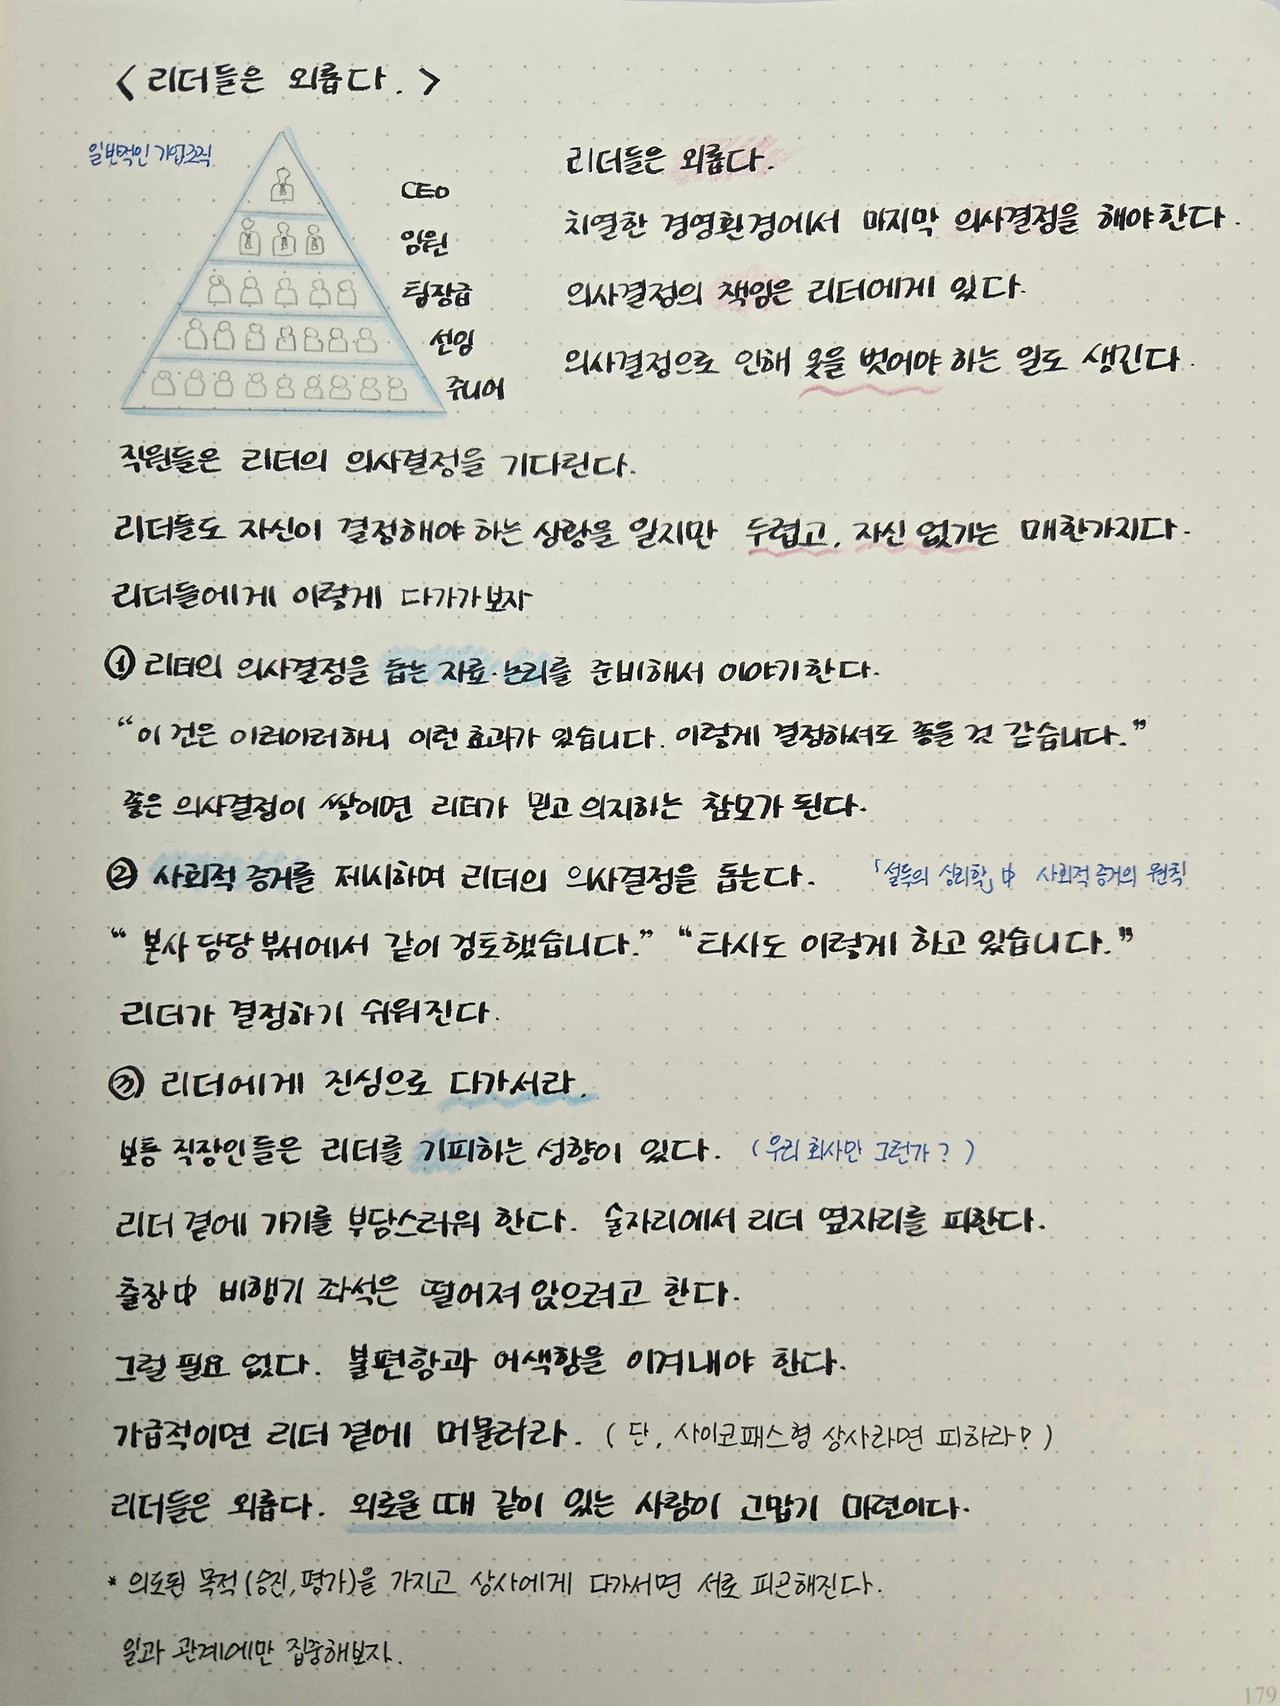 < 리더들은 외롭다. >
일반적인 기업조직
CEO
임원
팀장급
선임
주니어
리더들은 외롭다.
치열한 경영환경에서 마지막 의사결정을 해야한다.
의사결정의 책임은 리더에게 있다.
의사결정으로 인해 옷을 벗어야 하는 일도 생긴다.
직원들은 리더의 의사결정을 기다린다.
리더들도 자신이 결정해야 하는 상황을 알지만 두렵고, 자신 없기는 매한가지다.
리더들에게 이렇게 다가가보자
① 리더의 의사결정을 돕는 자료·논리를 준비해서 이야기한다.
“이 건은 이러이러하니 이런 효과가 있습니다. 이렇게 결정하셔도 좋을 것 같습니다.”
좋은 의사결정이 쌓이면 리더가 믿고 의지하는 참모가 된다.
② 사회적 증거를 제시하며 리더의 의사결정을 돕는다.
「설득의 심리학」 中 사회적 증거의 원칙
“ 본사 담당 부서에서 같이 검토했습니다.” “타사도 이렇게 하고 있습니다.”
리더가 결정하기 쉬워진다.
③ 리더에게 진심으로 다가서라.
보통 직장인들은 리더를 기피하는 성향이 있다. (우리 회사만 그런가? )
리더 곁에 가기를 부담스러워 한다. 술자리에서 리더 옆자리를 피한다.
출장中 비행기 좌석은 떨어져 앉으려고 한다.
그럴 필요 없다. 불편함과 어색함을 이겨내야 한다.
가급적이면 리더 곁에 머물러라. ( 단, 사이코패스형 상사라면 피하라! )
리더들은 외롭다. 외로울 때 같이 있는 사람이 고맙기 마련이다.
* 의도된 목적(승진, 평가)을 가지고 상사에게 다가서면 서로 피곤해진다.
일과 관계에만 집중해보자.
179